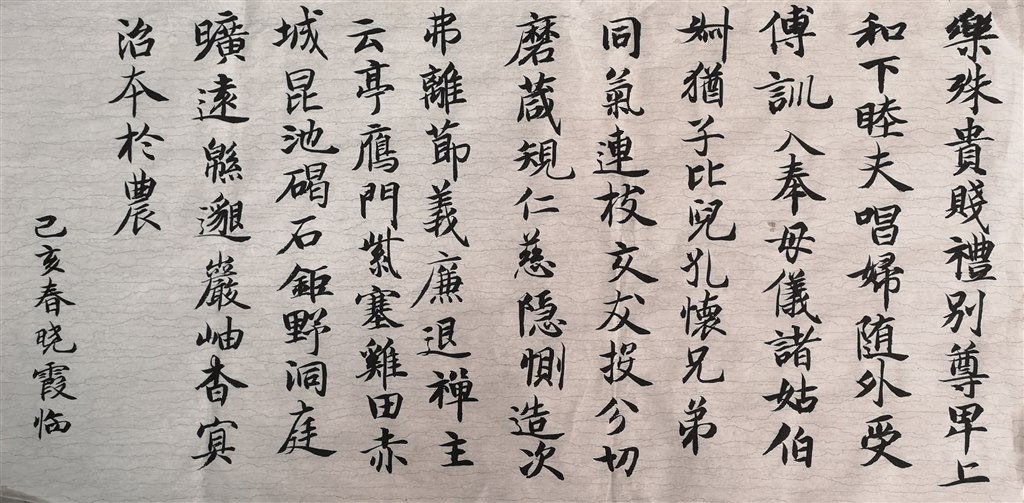 樂殊貴賤禮别尊卑上
和下睦夫唱婦随外受
傅訓入奉母儀諸姑伯
叔猶子比兒孔懷兄弟
同氣連枝交友投分切
磨葴規仁慈隐惻造次
弗離節義廉退禅主
云亭鴈門紫塞雞田赤
城昆池碣石鉅野洞庭
曠遠緜邈巖岫杳冥
治本於農
己亥春晓霞临